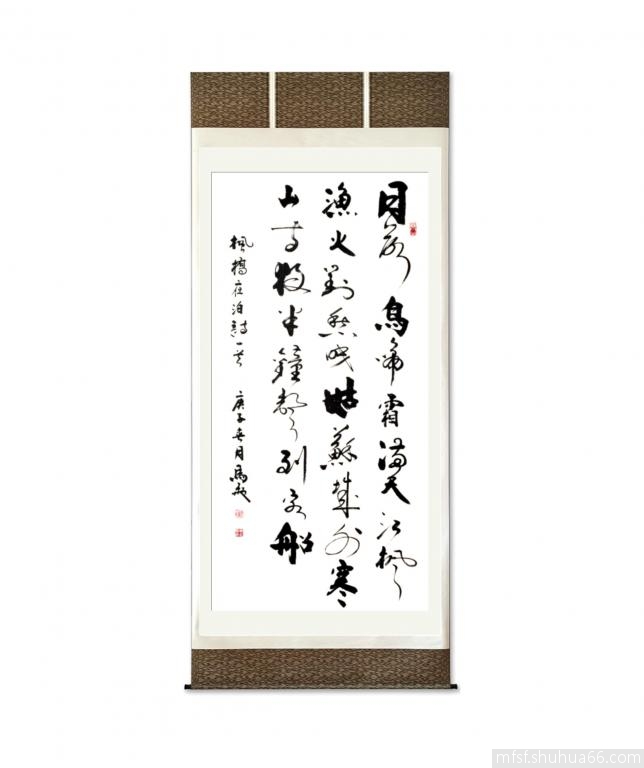 月落烏啼霜滿天江楓
漁火對愁眠姑蘇城外寒
山寺夜半鐘聲到客船
楓橋夜泊詩一首 庚子春月馬
mfsf.shuhua66.com